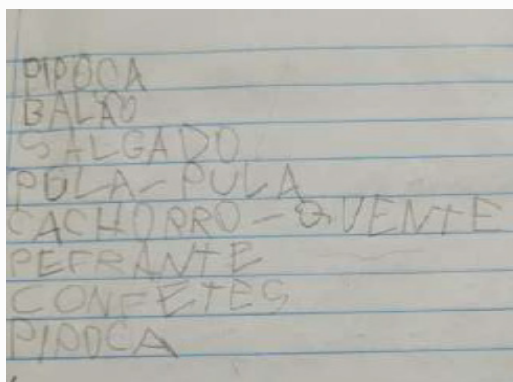 PIPOCA
BALÃO
SALGADO
PULA-PULA
CACHORRO-QUENTE
REFRANTE
CONFETES
PIPOCA